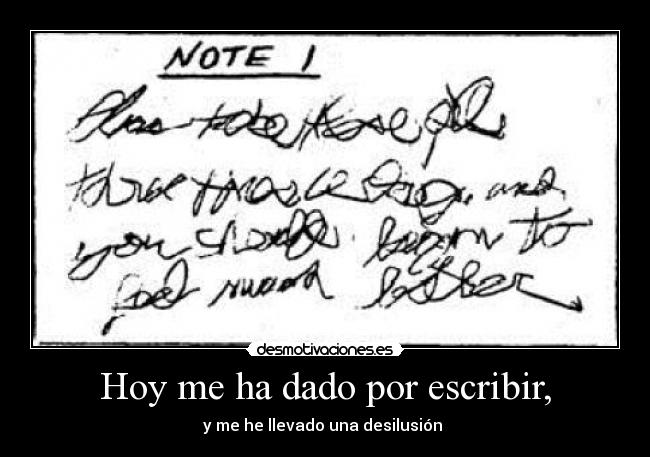 NOTE 1
Please take these pills
three times a day, and
you should begin to
feel much better
desmotivaciones.es
Hoy me ha dado por escribir,
y me he llevado una desilusión